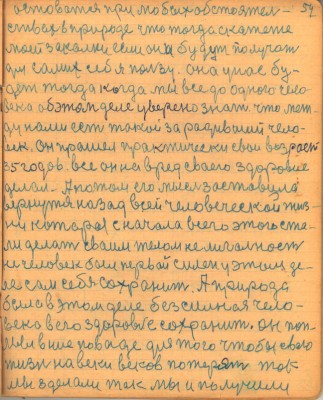 54
остоватся при любых обстоятел-
ствых в природе что тогда скажете
моей закалки если они будут получат
для самих себя ползу. она у нас бу-
дет тогда когда мы все до одного чело-
века об этом деле уверено знат что меж-
ду нами есть такой зародивший чело-
век. Он прашел практически свой возраст
35 годов. все он на вред сваего здоровие
делал. А потом его мысел заставила
вернутся назад всей человеческой жиз-
ни котора сначала всего этого ста-
ли делат сваим телом
человек был первый силен у этим де-
ле сам себя сохранит. А природа
была в этом деле безсилная чело-
века в его здоровье сохранит. Он
для того чтобы свою
жизн на веки веков потерят так
мы зделали так мы и получили